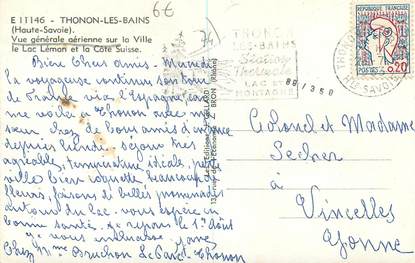 E 11146 - THONON-LES-BAINS
(Haute-Savoie).
Vue générale aérienne sur la Ville
le Lac Léman et la Côte Suisse.
6€
74
THONON
LES-BAINS
Station
Thermale
LAC
MONTAGNE
THONON
Hte SAVOIE
REPUBLIQUE FRANCAISE
POSTES 0,20
88/350
Bien Chers amis -
la voyageuse continue son tour
de France via l'Espagne, car
me voilà à Thonon avec ma
sœur, chez de bons amis d'union
depuis lundi - séjour très
agréable, température idéale, jolie
ville bien coquette beaucoup de
fleurs, faisons de belles promenades
autour du lac - vous espère en
bonne santé - repars le 1er août
Chez Mme Bruchon Le Thonon
BRON (Rhône)
Colonel et Madame
Secher
à
Vincelles
Yonne